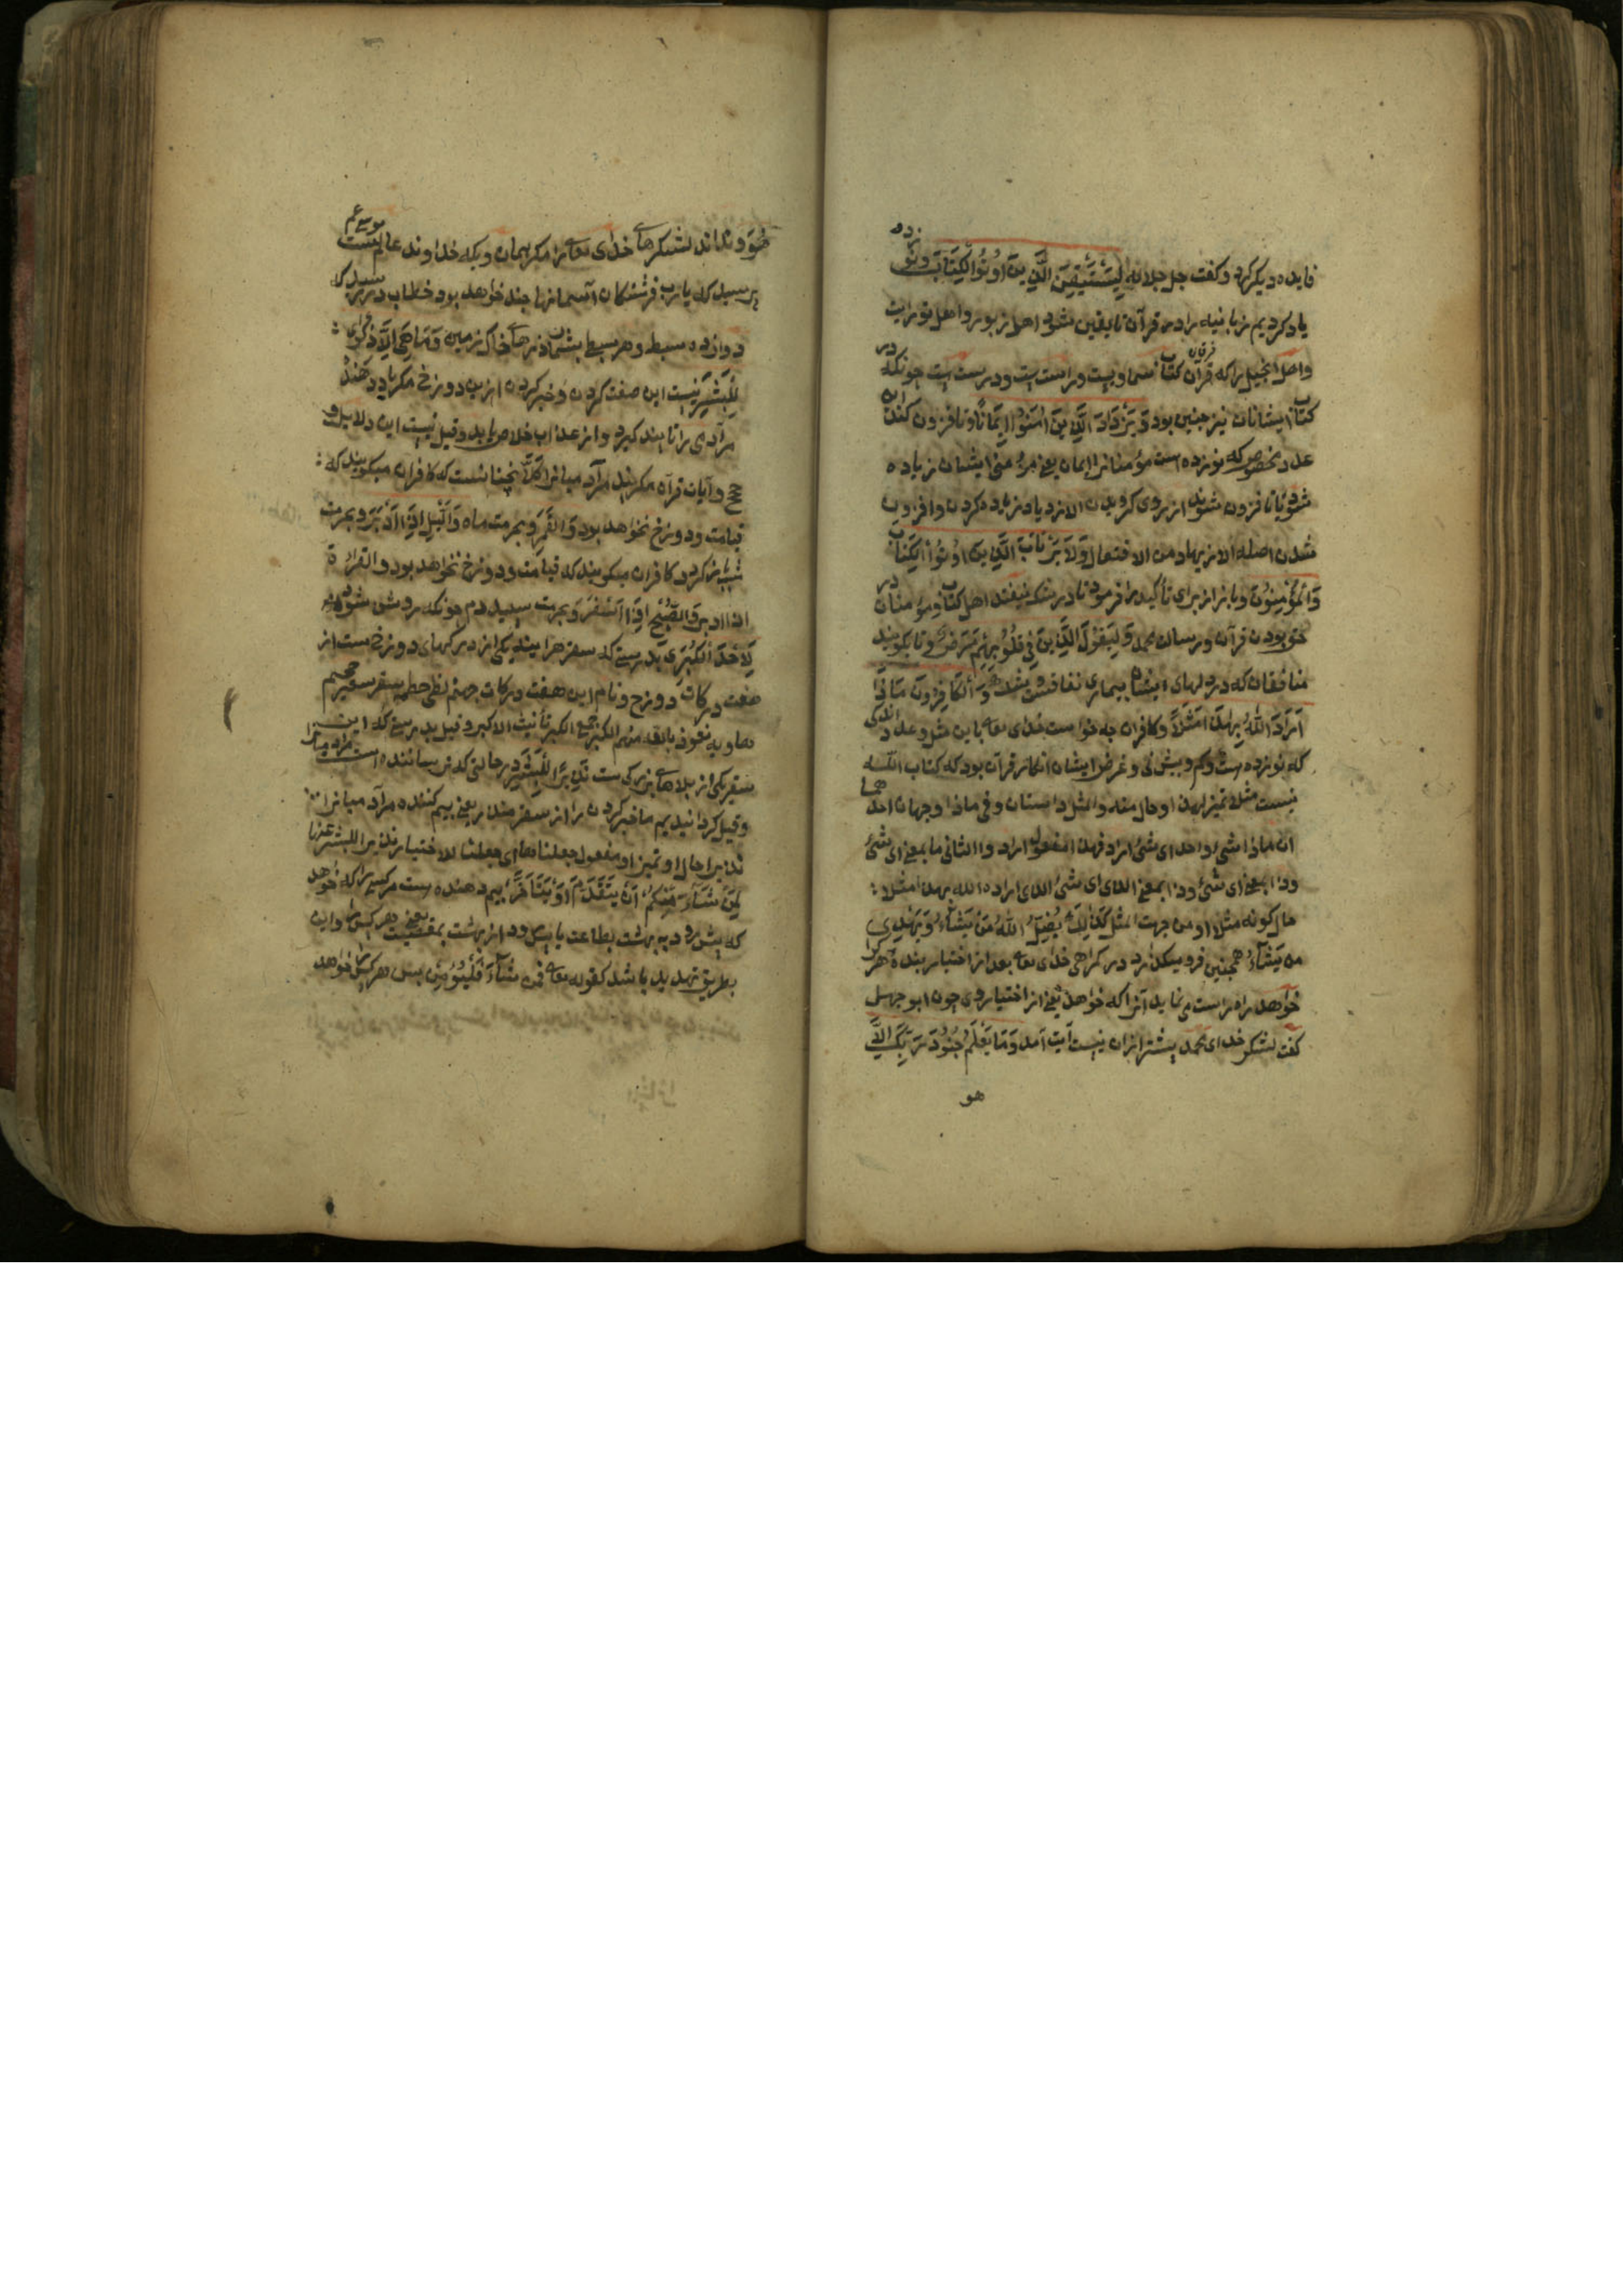 فایده دیگر کرد و گفت جل جلاله لِیَسْتَیْقِنَ الَّذِینَ اُوتُوا الْکِتَابَ و نو
زده
یاد کردیم زبانیه را در قرآن تا یقین شود اهل زبور و اهل توریت
و اهل انجیل را که قرآن کتاب سماویست و راست است و درست است چونکه در
کتاب ایشانان نیز چنین بود وَیَزْدَادَ الَّذِینَ اٰمَنُوا اِیمَانًا و تا افزون کند این
عدد مخصوص که نوزده است مؤمنانرا ایمان یعنی مؤمنی ایشان زیاده
شود یا تا فزون شوند از روی گرویدن الازدیاد زیاده کردن و افزون
شدن اصله الازتیاد من الافتعال وَلَا یَرْتَابَ الَّذِینَ اُوتُوا الْکِتَابَ
وَالْمُؤْمِنُونَ و باز از برای تأکید را فرمود تا در شک نیفتند اهل کتاب و مؤمنان در
حق بودن قرآن و رسالت محمد وَلِیَقُولَ الَّذِینَ فِی قُلُوبِهِمْ مَرَضٌ و تا بگویند
منافقان که در دلهای ایشان بیماری نفاقست و شک وَالْکَافِرُونَ مَاذَا
اَرَادَ اللّٰهُ بِهٰذَا مَثَلًا و کافران چه خواست خدای تعالی باین مثل و عدد اندکی
که نوزده است و کم و بیش نی و غرض ایشان انکار قرآن بود که کتاب الله
نیست مثلا تمیز لهذا او حال منه والمثل داستان و فی ماذا وجهان احدهما
ان ماذا شیء واحد ای شیء اراد فهذا مفعول اراد و الثانی ما بمعنی ای شیء
وذا بمعنی الذی ای شیء الذی اراده الله بهذا مثلا
حال کونه مثلا او من جهت المثل کَذٰلِکَ یُضِلُّ اللّٰهُ مَنْ یَشَاءُ وَیَهْدِی
مَنْ یَشَاءُ همچنین فرو میگذارد در گمراهی خدای تعالی بعد از اختیار بنده هر کرا
خواهد و راه راست می نماید آنرا که خواهد یعنی از اختیار وی چون ابو جهل
گفت لشکر خدای محمد بیشتر ازان نیست آیت آمد وَمَا یَعْلَمُ جُنُودَ رَبِّکَ اِلَّا
هو
هُوَ و نداند لشکرهای خدای تعالی را مگر همان و یکه خداوند عالم است موسی عم
پرسید که یا رب فرشتگان آسمانها چند خواهد بود خطاب در رسید که
دوازده سبط و هر سبط بشمار ذرهای خاک زمین وَمَا هِیَ اِلَّا ذِکْرٰی
لِلْبَشَرِ نیست این صفت کردن و خبر کردن ازین دوزخ مگر یاد دهنده
مر آدمی را تا پند گیرد و از عذاب خلاص یابد و قیل نیست این دلایل و
حجج و آیات قرآن مگر پند مر آدمیانرا کَلَّا نچنانست که کافران میگویند که
قیامت و دوزخ نخواهد بود وَالْقَمَرِ و بحرمت ماه وَالَّیْلِ اِذْ اَدْبَرَ و بحرمت
شب باز گردد کافران میگویند که قیامت و دوزخ نخواهد بود والقراءة
اذا ادبر وَالصُّبْحِ اِذَا اَسْفَرَ و بحرمت سپیده دم چونکه روشن شود
لَاِحْدَی الْکُبَرِ بدرستی که سقر هر آینه یکی از درکهای دوزخ است از
هفت درکات دوزخ و نام این هفت درکات جهنم لظی حطمه سقر سعیر جحیم
هاویه نعوذ بالله منهم الکبر جمع الکبری تأنیث الاکبر و قیل بدرستی که این
سقر یکی از بلاهای بزرگست نَذِیرًا لِلْبَشَرِ در حالتی که ترساننده است مر آدمیانرا
و قیل گردانیدیم ما خبر کردن را از سقر منذر یعنی بیم کننده مر آدمیانرا
نذیرا حال او تمیز او مفعول جعلناها ای جعلنا الاختیار نذیرا للبشر
لِمَنْ شَاءَ مِنْکُمْ اَنْ یَتَقَدَّمَ اَوْ یَتَاَخَّرَ بیم دهنده است مر کسی را که خواهد
که پیش رود به بهشت بطاعت یا پس رود از بهشت بمعصیت یعنی هر کس را و این
بطریق تهدید باشد کقوله تعالی فمن شَاءَ فَلْیُؤْمِنْ پس هر کس خواهد